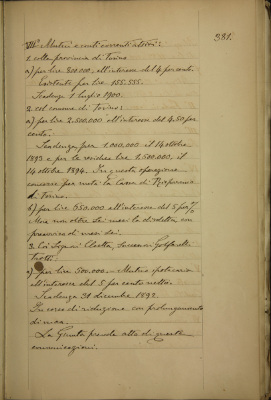 381.
VIII° Mutui e conti correnti attivi:
1. colla provincia di Torino
a) per lire 800.000. all'interesse del 4 per cento.
Esistente per lire 155.555.
Scadenza 1 luglio 1900.
2. col comune di Torino:
a) per lire 2.500.000 all'interesse del 4.50 per
cento.
Scadenza per 1.000.000 il 14 ottobre
1893 e per le residue lire 1.500.000, il
14 ottobre 1894. In questa operazione
concorre per metà la Cassa di Risparmio
di Torino.
b) per lire 350.000 all'interesse del 5 per %
Mora non oltre sei mesi la disdetta con
preavviso di mesi sei.
3. Coi Signori Cletta,
Trotti:
a) per lire 500.000 - Mutuo ipotecario
all'interesse del 5 per cento netto.
Scadenza 31 dicembre 1892
In corso di riduzione con prolungamento
di mora.
La Giunta prende atto di queste
comunicazioni.